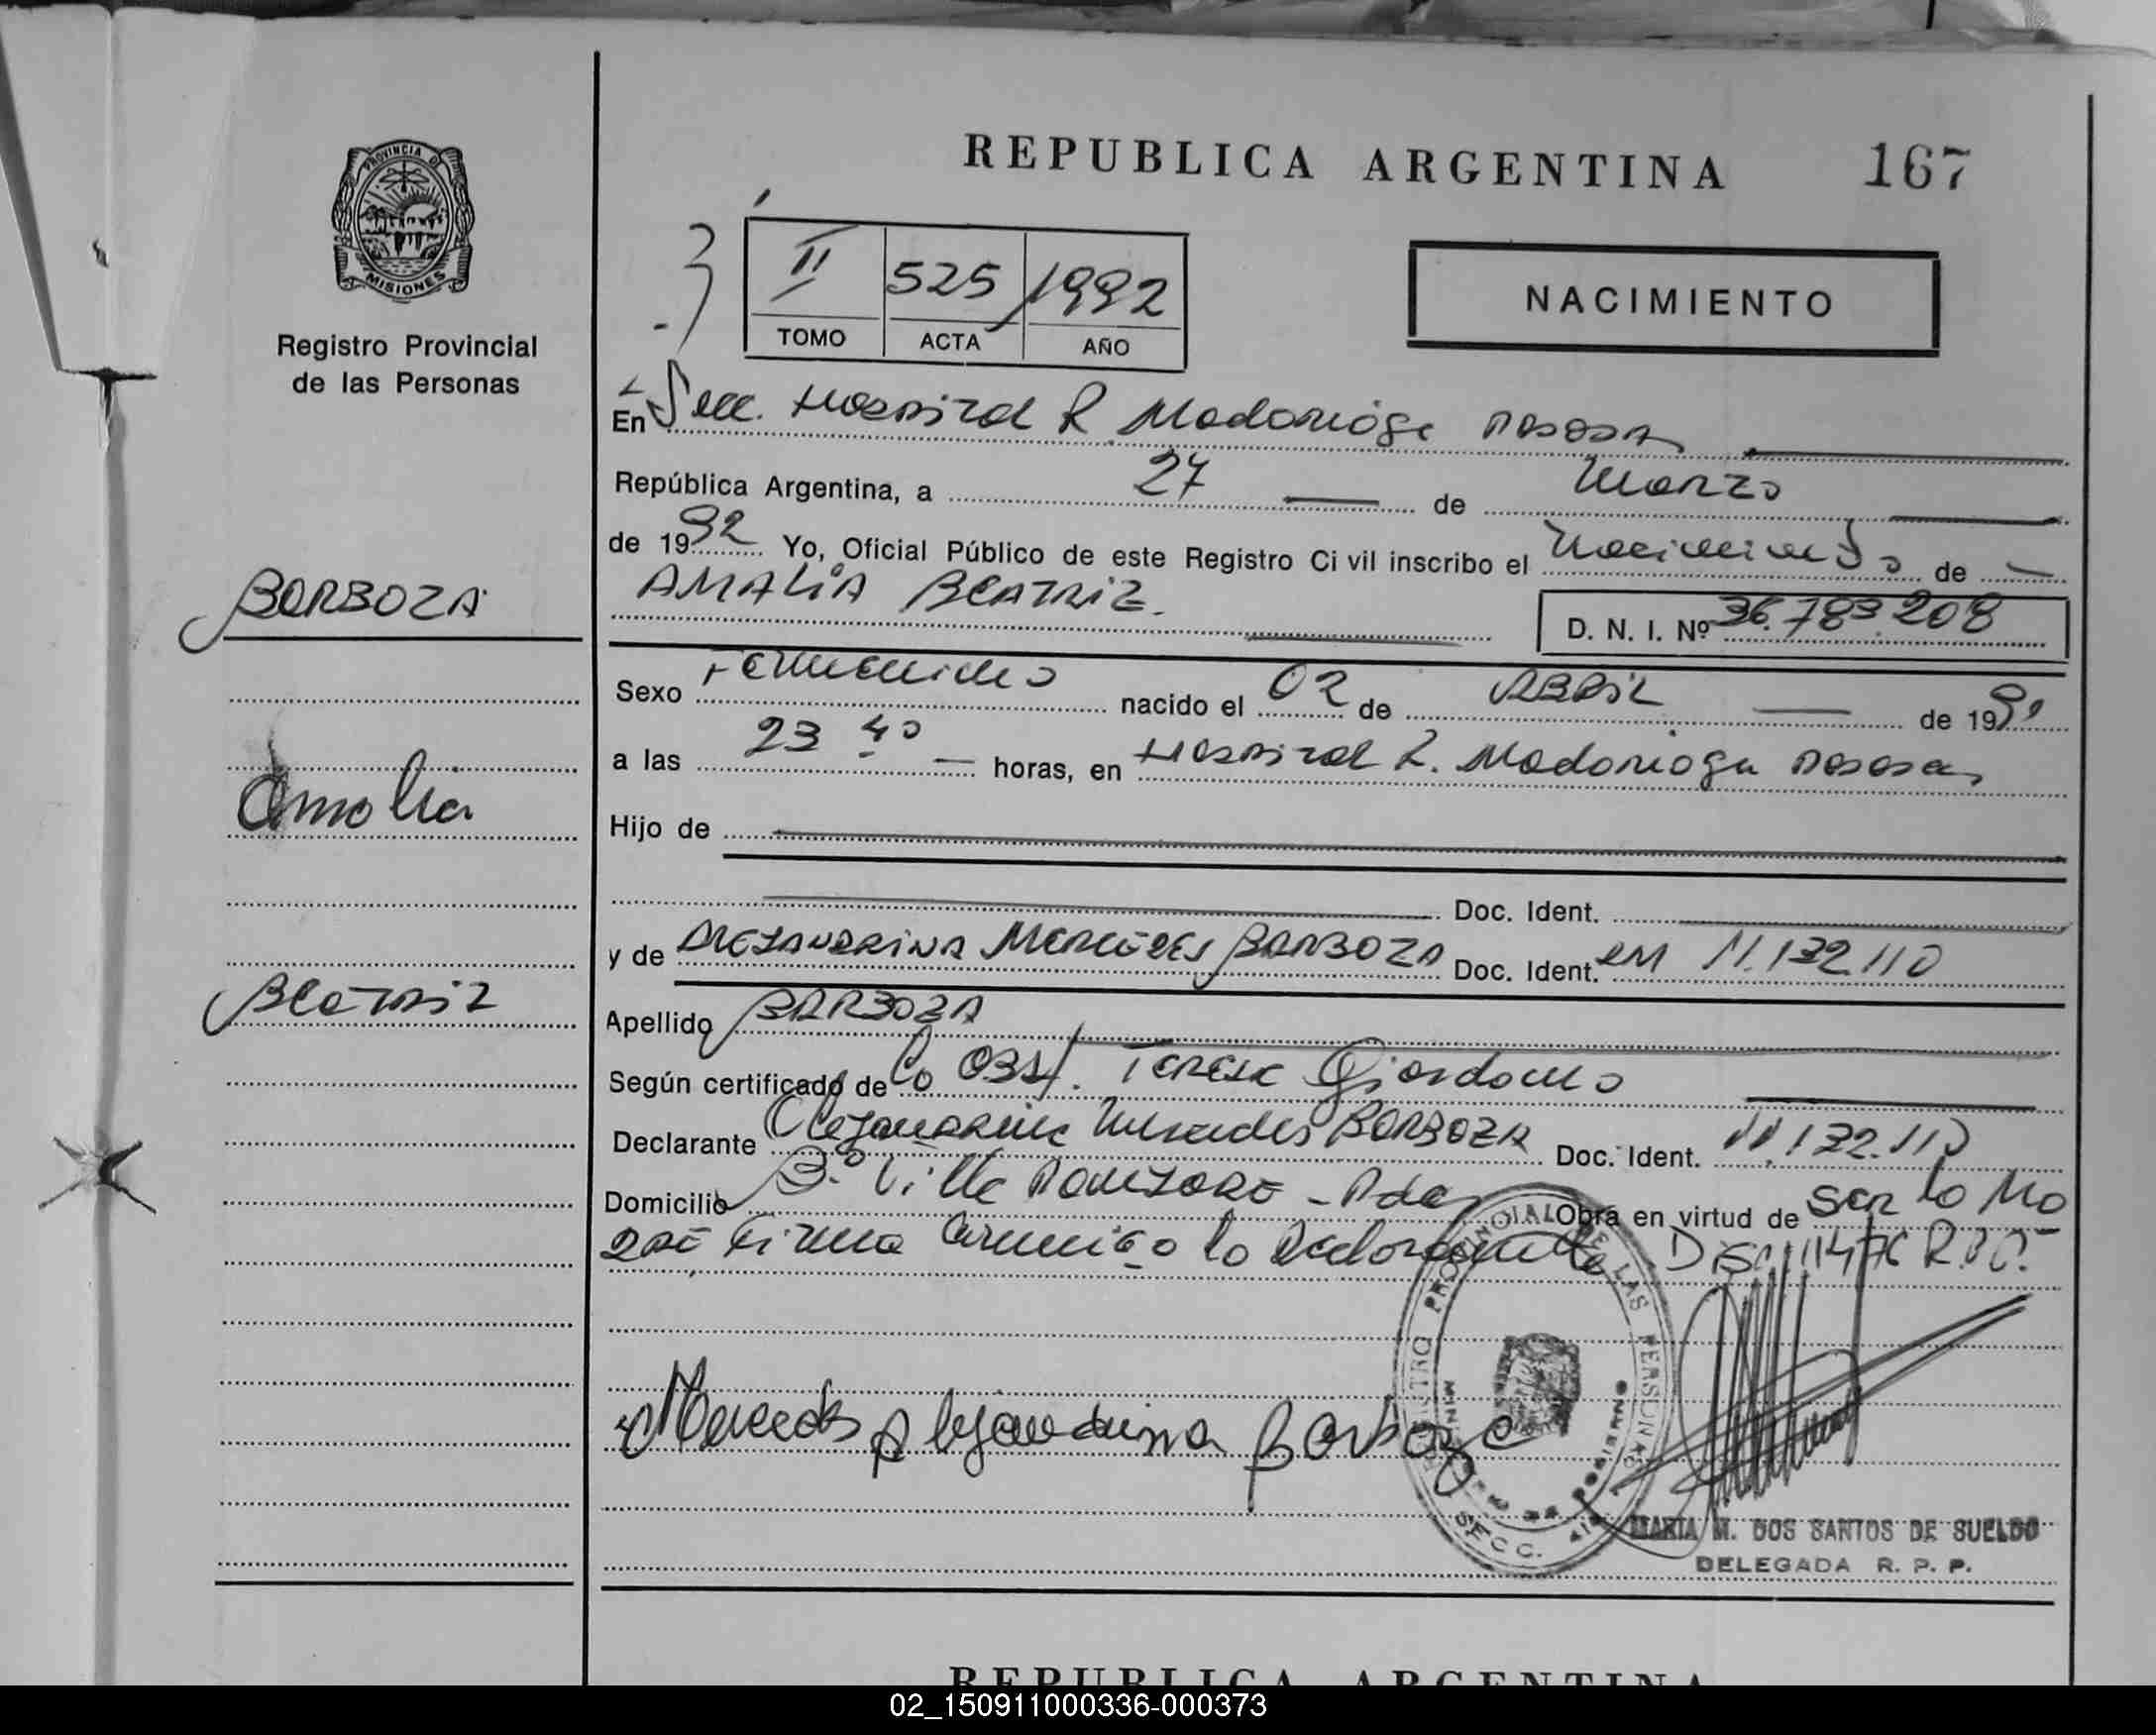 PROVINCIA DE
MISIONES
Registro Provincial
de las Personas
BARBOZA
Amalia
Beatriz
REPUBLICA ARGENTINA 167
II 525 1992
TOMO ACTA AÑO
NACIMIENTO
En Secc. Hospital R. Madariaga Posadas
República Argentina, a 27 de Marzo
de 1992 Yo, Oficial Público de este Registro Civil inscribo el Nacimiento de
AMALIA BEATRIZ.
D. N. I. Nº 36.783.208
Sexo Femenino nacido el 02 de ABRIL de 1991
a las 23 40 horas, en Hospital R. Madariaga Posadas
Hijo de
Doc. Ident.
y de ALEJANDRINA MERCEDES BARBOZA Doc. Ident. 11.132.110
Apellido BARBOZA
Según certificado de la Obst. Teresa Giordano
Declarante Alejandrina Mercedes BARBOZA Doc. Ident. 11.132.110
Domicilio Bº Villa Pdas Obra en virtud de ser la Ma
dre firma conmigo la declarante
Mercedes Alejandrina Barboza
REGISTRO PROVINCIAL DE LAS PERSONAS
SECC.
MARIA M. DOS SANTOS DE SUELDO
DELEGADA R. P. P.
REPUBLICA ARGENTINA
02_150911000336-000373